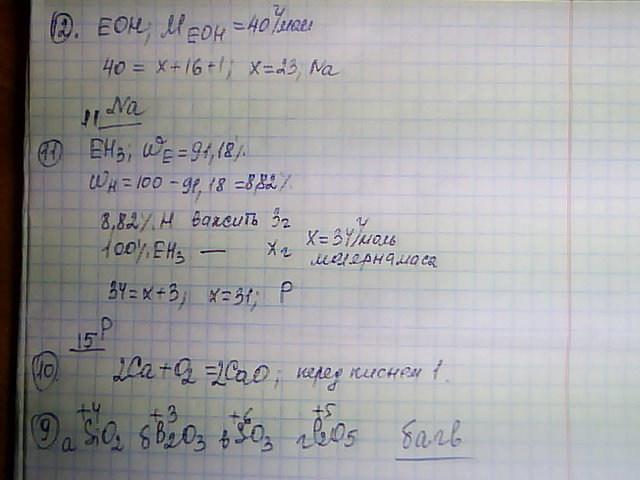 12. EOH; M EOH = 40 г/моль
40 = x+16+1; x=23, Na
11 Na
11 EH3; WE = 91,18%
WH = 100 - 91,18 = 8,82%
8,82% H важить 3г
100% EH3 — xг x=34 г/моль
молярна маса
34 = x+3; x=31; P
15 P
10. 2Ca + O2 = 2CaO; перед киснем 1.
+4 +3 +6 +5
9 а SiO2 б B2O3 в SO3 г P2O5 багв